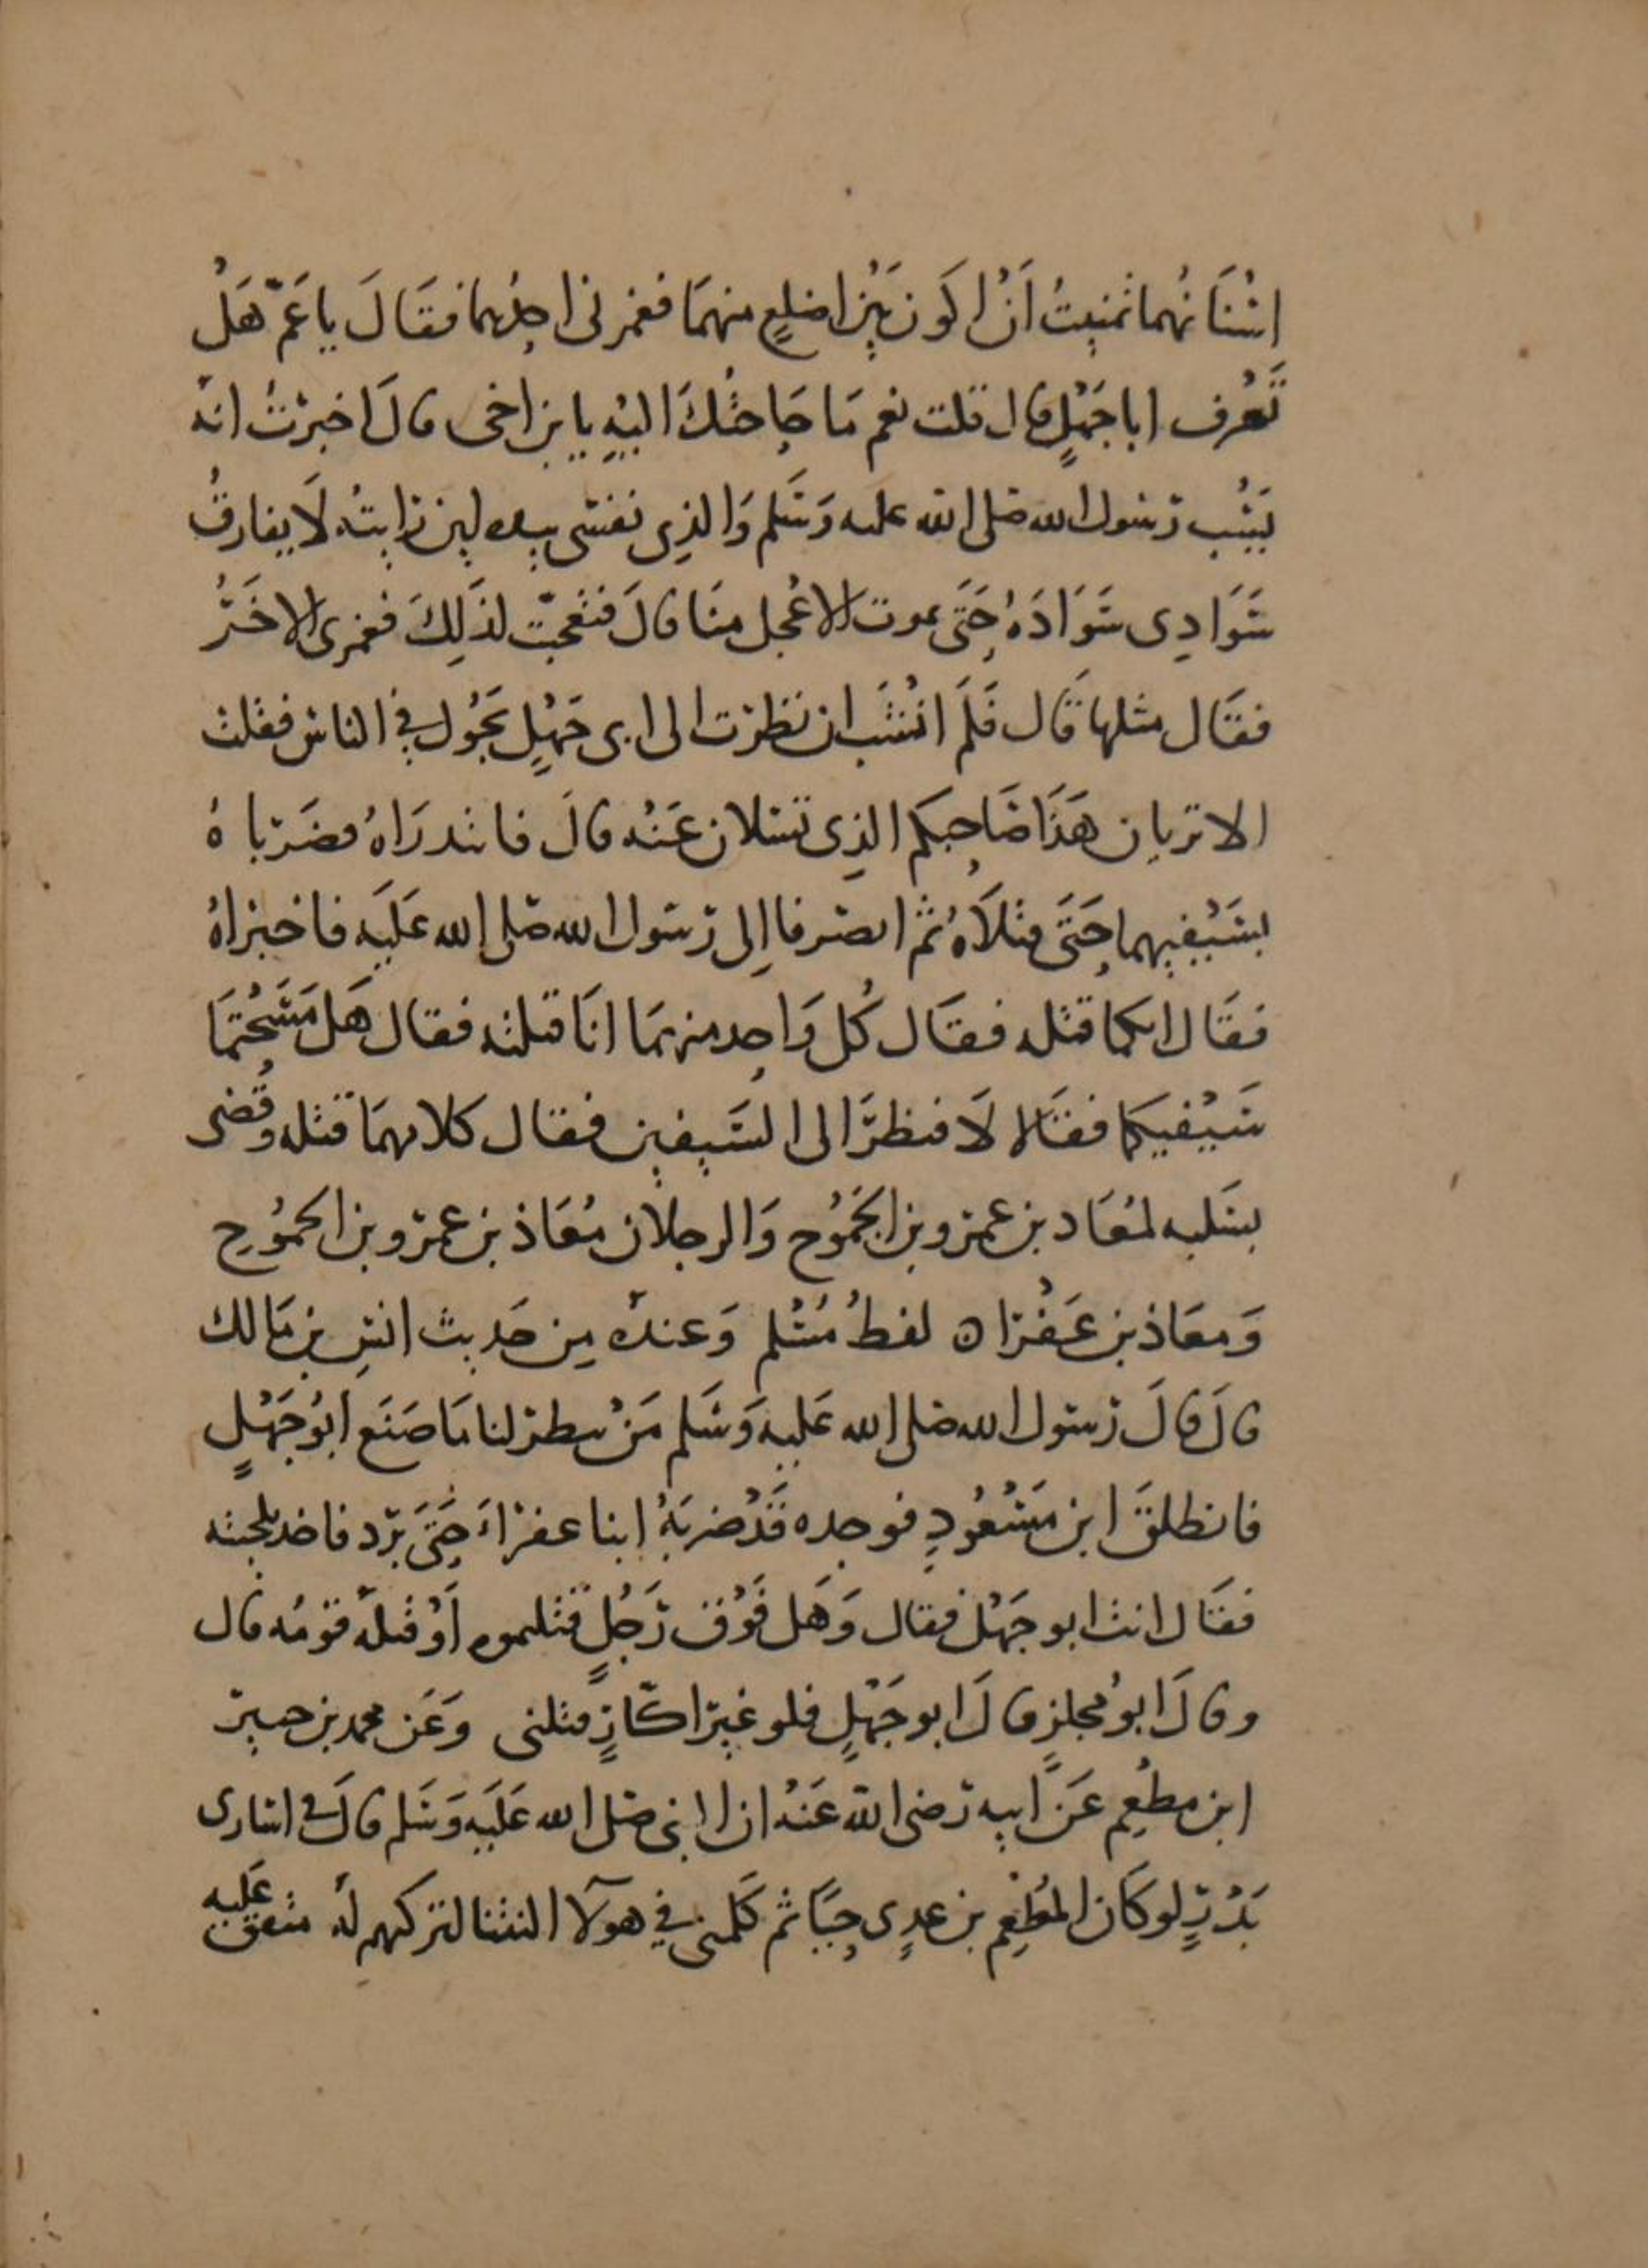 اسْنَانُهما تمنيتُ اَنْ اكَون بَيْن اضلعٍ منهمَا فغمزنى احِدُهما فقَالَ يا عَمّ هَلْ
تَعْرف ابا جَهْلٍ قال قلت نعم مَا حَاجتُكَ اليْهِ يا بن اخى قالَ اخبرْتُ انهَّ
يَسُْب رَسُول الله صَلى الله عليه وَسَلم وَالذِى نفسى بيده لين رَايتُه لَا يفارقُ
سَوَادِى سَوَادَهُ حَتَّى يموت الاعْجل منَا قالَ فتعجّبت لذَلِكَ فغمزى الاخَرُ
فقَال مثلها قَال فَلَم انْشَب ان نظرْت الى ابى جَهْلٍ يَجُول فِي الناس فقلت
الا تريان هَذَا صَاحِبكم الذِى تسَلان عَنْه قالَ فابتدرَاهُ فضَرَباهُ
بسَيْفيهما حَتَّى قتلَاهُ ثم انصرفا اِلى رَسَول الله صَلى الله عَليَه فاخبرَاهُ
فقَال ايكما قتله فقَال كُل وَاحِد منهمَا انَا قتلته فقال هَل مَسَحْتمَا
سَيْفيكما فقَالا لَا فنظرَ الى السَيفين فقال كلاهمَا قتله وقُضى
بسَلبه لمعَاد بن عمرَو بن الجَمُوح وَالرجلان مُعَاذ بن عمرَو بن الجموُح
وَمعَاذ بن عَفْرَا ه لفظُ مُسْلم وَعندهَ مِن حَديث انسِ بن مَالك
قالَ قالَ رَسَول الله صَلى الله عَليه وَسَلم مَنْ ينظر لنا مَا صَنَع ابُو جَهْلٍ
فانطلقَ ابن مَسْعُودِ فوجده قَدْ ضربَهُ ابنا عفرَاءَ حَتَّى بَرَد فاخد بلحيته
فقَال انت ابو جَهْل فقال وَهَل فَوْق رَجُلٍ قتلتموه اَوْ قتلهَ قومُه قال
وقالَ ابُو مجلزٍ قالَ ابو جَهْلٍ فلو غيرَ اكّارٍ قتلنى وَعَن محمد بن جبيرَ
ابن مطعِم عَنْ ابيه رَضى الله عَنْه ان النبى صَلى الله عَليَه وَسَلم قالَ فى اسَارى
بَدْرٍ لو كاَن المُطْعِم بن عدِى حيًّا ثم كَلمنى فِي هوَلآ النتنا لترَكهم لهُ متفق عَليه